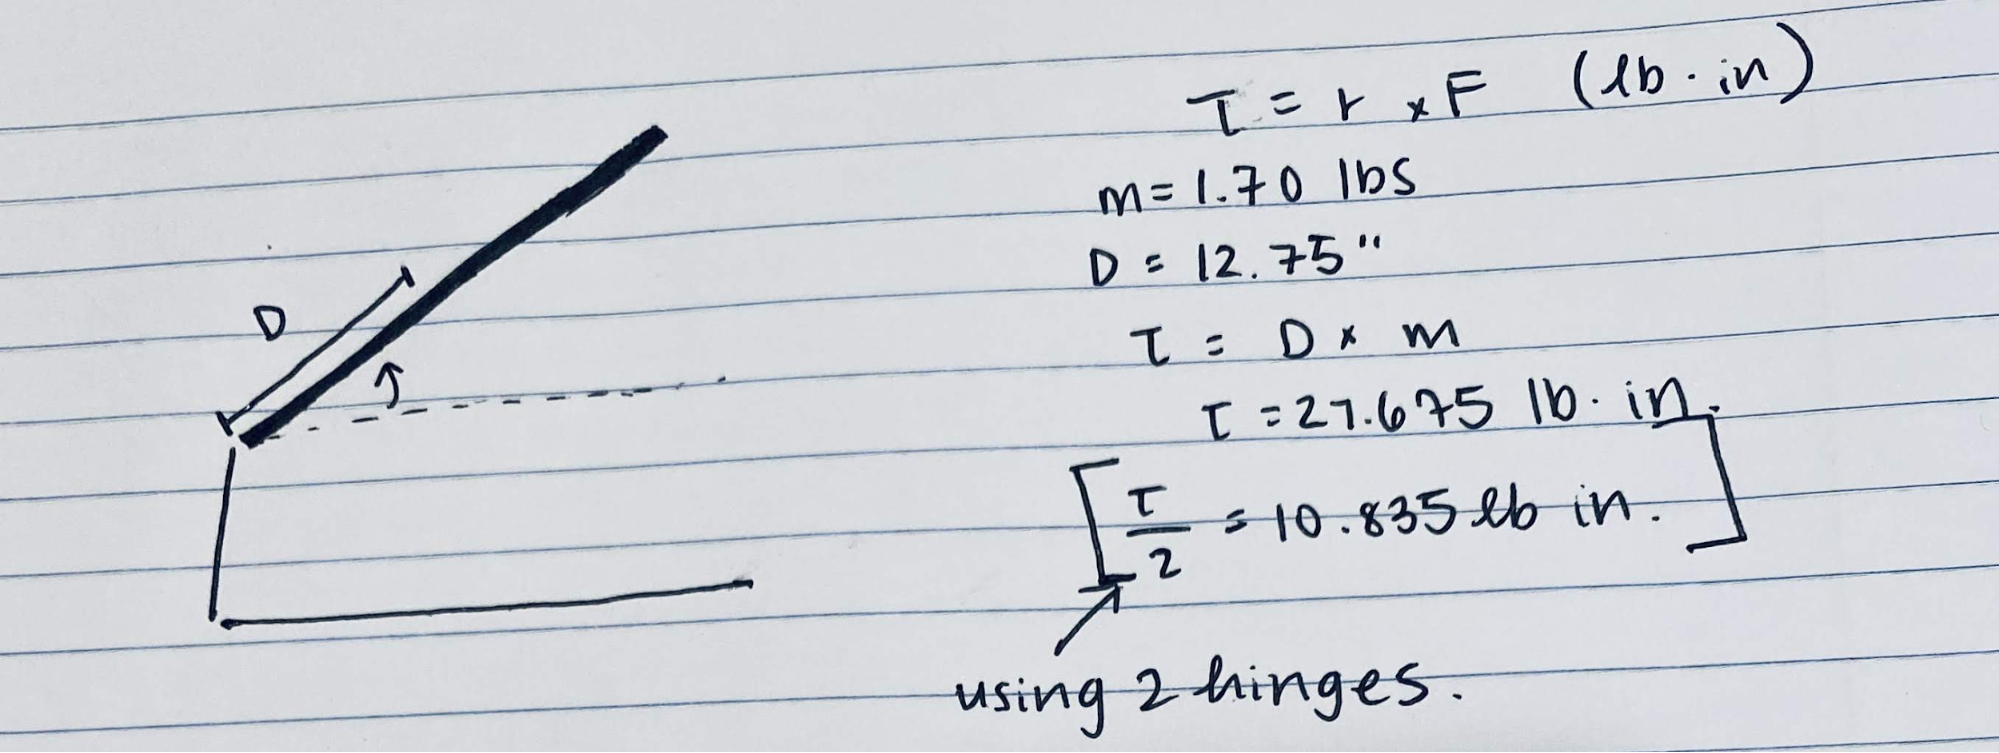 τ = r × F (lb · in)
m = 1.70 lbs
D = 12.75"
D
τ = D × m
τ = 21.675 lb · in.
[τ/2 = 10.835 lb in.]
using 2 hinges.